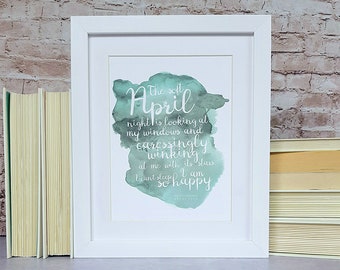 The soft
April
night is looking at
my windows and
caressingly
winking
at me with its stars
I can't sleep, I am
so happy